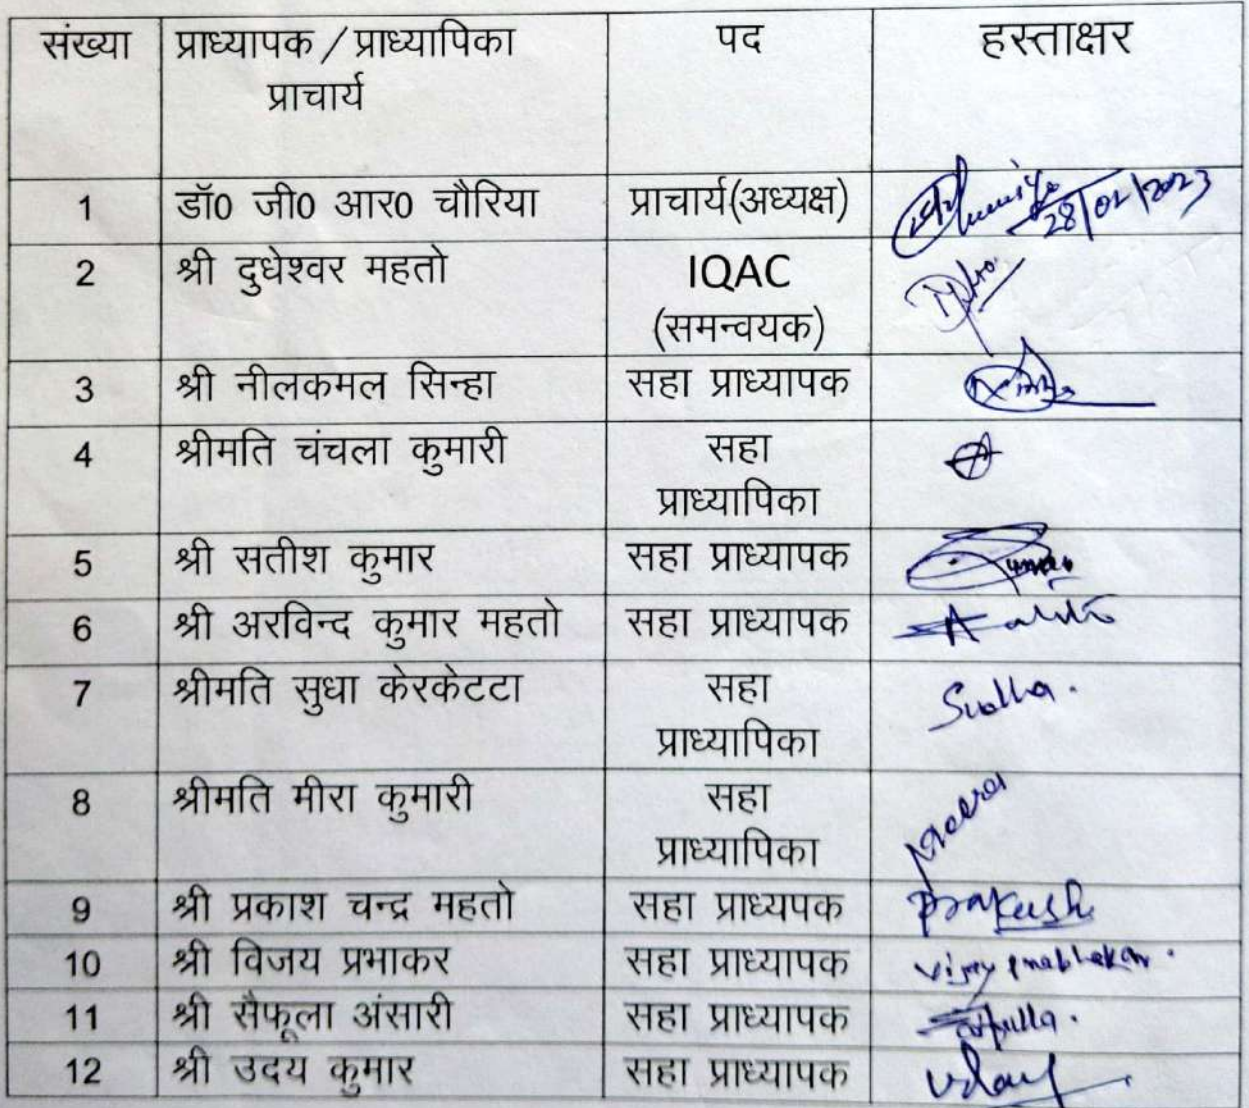 संख्या प्राध्यापक / प्राध्यापिका पद हस्ताक्षर
प्राचार्य
1 डॉ0 जी0 आर0 चौरिया प्राचार्य(अध्यक्ष) 28/02/2023
2 श्री दुधेश्वर महतो IQAC
(समन्वयक)
3 श्री नीलकमल सिन्हा सहा प्राध्यापक
4 श्रीमति चंचला कुमारी सहा
प्राध्यापिका
5 श्री सतीश कुमार सहा प्राध्यापक
6 श्री अरविन्द कुमार महतो सहा प्राध्यापक
7 श्रीमति सुधा केरकेटटा सहा Sudha.
प्राध्यापिका
8 श्रीमति मीरा कुमारी सहा Meera
प्राध्यापिका
9 श्री प्रकाश चन्द्र महतो सहा प्राध्यपक Prakash
10 श्री विजय प्रभाकर सहा प्राध्यापक Vijay Prabhakar.
11 श्री सैफूला अंसारी सहा प्राध्यापक
12 श्री उदय कुमार सहा प्राध्यापक Uday